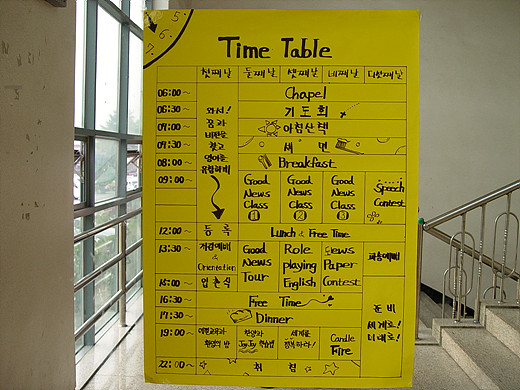 5.
6.
7.
Time Table
첫째날 둘째날 셋째날 네째날 다섯째날
06:00~ Chapel
06:30~ 기도회
07:00~ 아침산책
07:30~ 세 면
08:00~ Breakfast
와서!
꿈과
비전을
찾고
영어를
09:00~
Good News Class ①
Good News Class ②
Good News Class ③
Speech Contest
12:00~ 등 록 Lunch & Free Time
13:30~
개강예배 & Orientation
Good News Tour
Role playing English
News Paper Contest
파송예배!
15:00~ 입 촌 식
16:30~ Free Time
17:30~ Dinner
준 비
세계로!
미래로!
19:00~
환영의 밤
찬양과
JoyJoy 학습법
세계를
Candle Fire
22:00~ 취 침